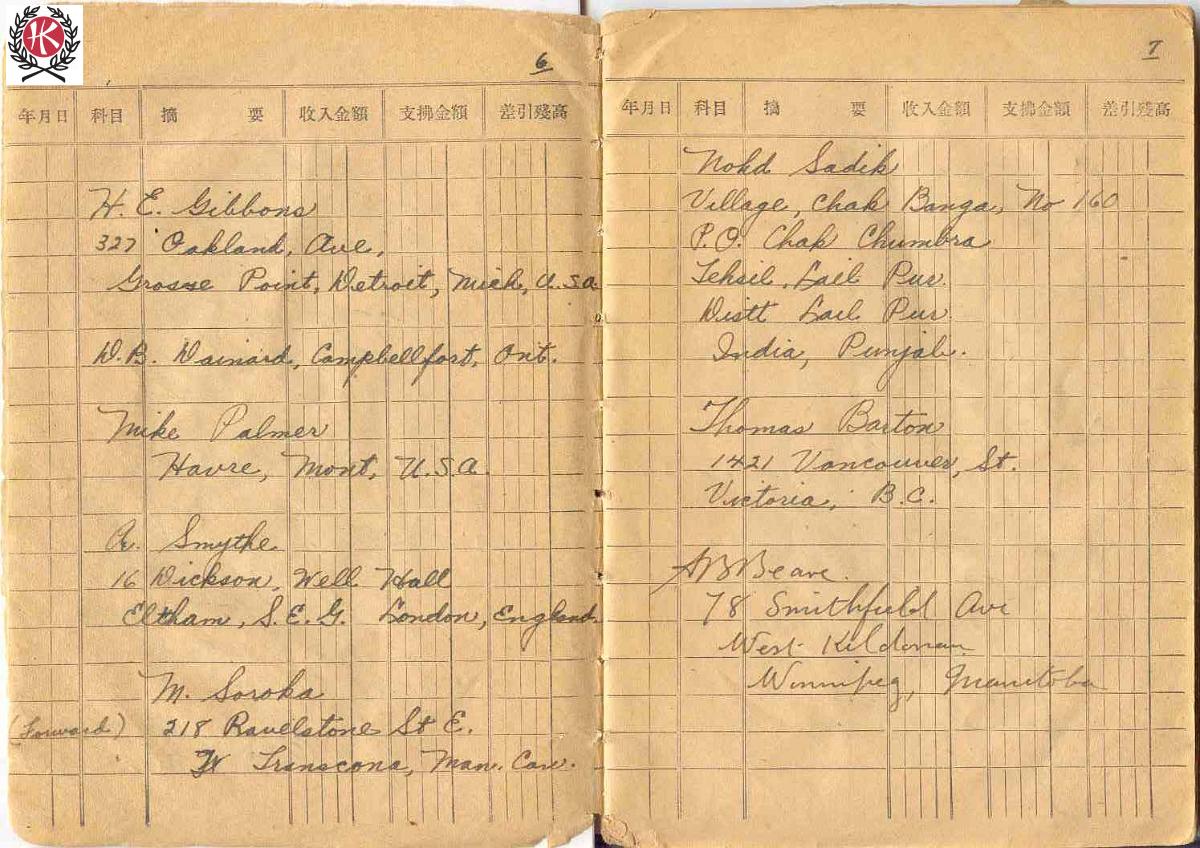 HK
6
年月日 科目 摘要 収入金額 支拂金額 差引残高
H. E. Gibbons
327 Oakland, Ave,
Grosse Point, Detroit, Mich, U.S.A
D.B. Dainard, Campbellfort, Ont.
Mike Palmer
Havre, Mont, U.S.A.
A. Smythe
16 Dickson, Well Hall
Eltham, S.E.G. London, England
M. Soroka
(Forward) 218 Ravelstone St E.
W Transcona, Man. Can.
7
年月日 科目 摘要 収入金額 支拂金額 差引残高
Nohd Sadik
Village, Chak Banga, No 160
P.O. Chak Chumbra
Tehsil, Lail Pur.
Distt Lail Pur.
India, Punjab.
Thomas Barton
1421 Vancouver, St.
Victoria, B.C.
78 Smithfield Ave
West Kildonan
Winnipeg, Manitoba